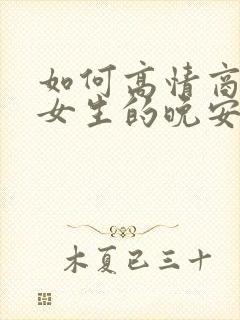 如何高情商
女生的晚安
木夏已三十